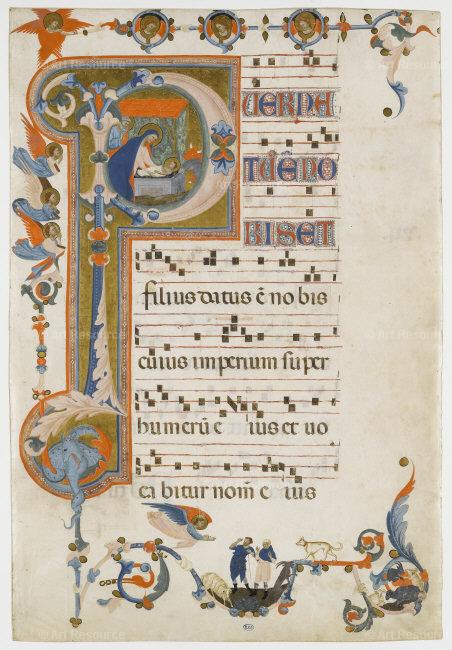 PUER NA
TUS Ē NO
BIS ET
filius datus ē nobis
cuius imperium super
humerū e ius et vo
ca bitur nom̄ e ius
Art Resource